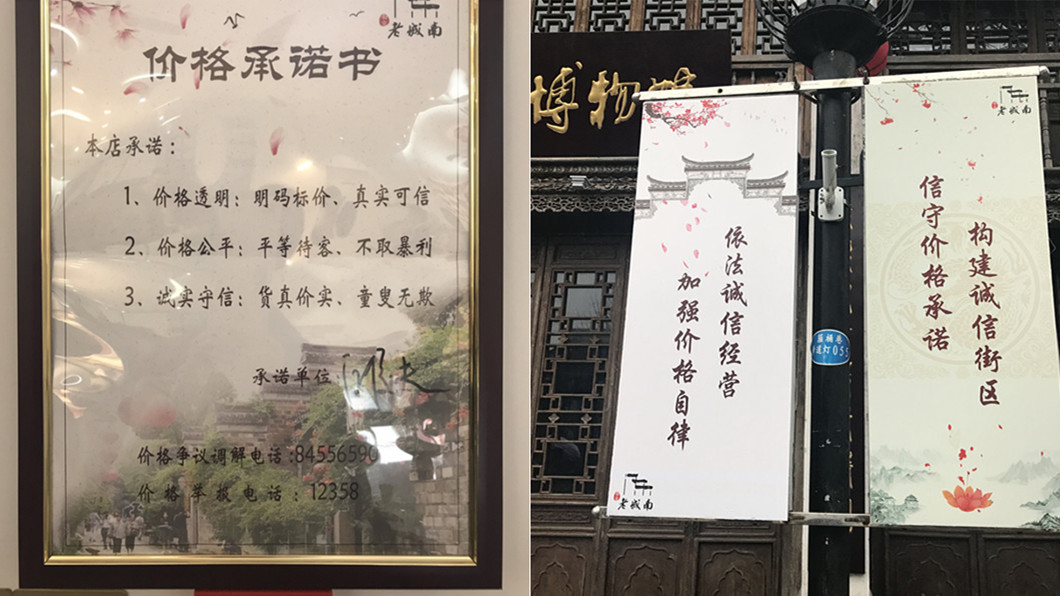 老城南
价格承诺书
本店承诺：
1、价格透明：明码标价、真实可信
2、价格公平：平等待客、不取暴利
3、诚实守信：货真价实、童叟无欺
承诺单位
价格争议调解电话:84556590
价格举报电话：12358
博物馆
依法诚信经营
加强价格自律
老城南
老城南
构建诚信街区
信守价格承诺
路灯055